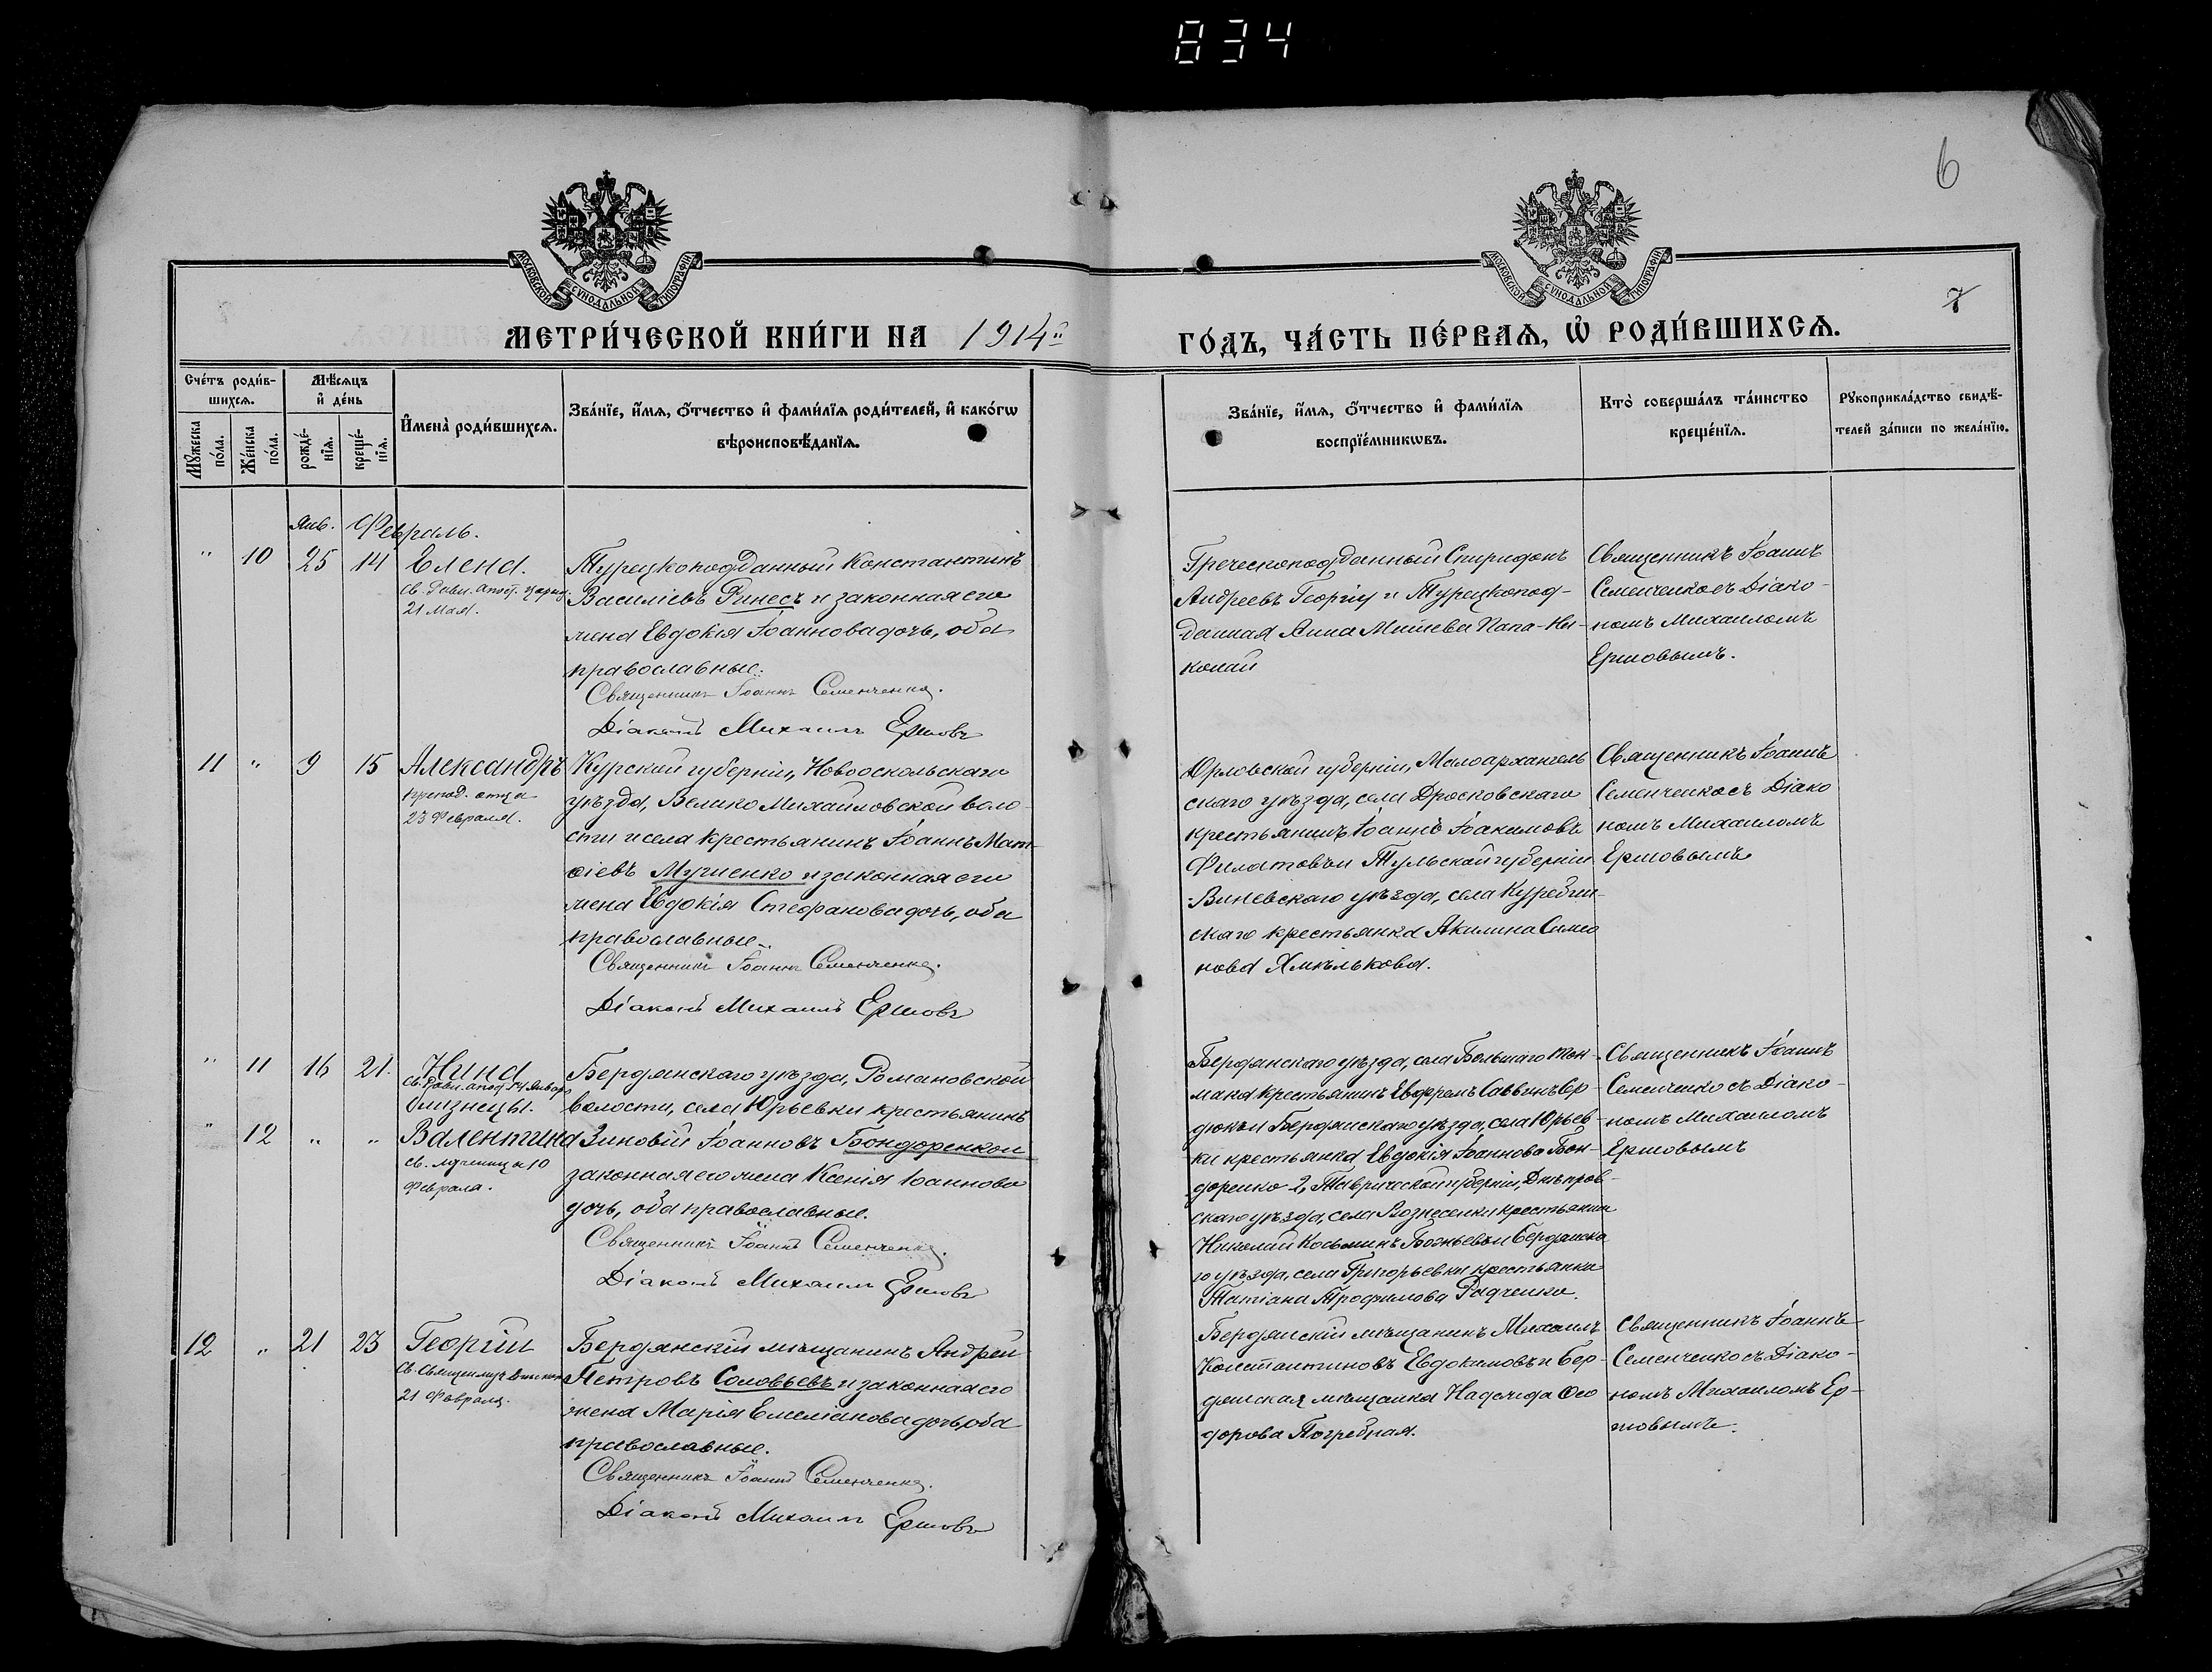 834
6
МОСКОВСКОЙ СѴНОДАЛЬНОЙ ТИПОГРАФІИ
МОСКОВСКОЙ СѴНОДАЛЬНОЙ ТИПОГРАФІИ
7
МЕТРИ́ЧЕСКОЙ КНИ́ГИ НА 1914й
ГО́ДЪ, ЧА́СТЬ ПЕ́РВАѦ, Ѡ҆ РОДИ́ВШИХСѦ.
Сче́тъ роди́в-
шихсѧ.
Мѹжеска по́ла.
Же́нска по́ла.
Мѣ́сѧцъ
и҆ де́нь
рожде́-
нїѧ.
креще́-
нїѧ.
И҆мена̀ роди́вшихсѧ.
Зва́нїе, и҆́мѧ, ѻ҆́тчество и҆ фами́лїѧ роди́телей, и҆ како́гѡ
вѣроисповѣ́данїѧ.
Зва́нїе, и҆́мѧ, ѻ҆́тчество и҆ фами́лїѧ
воспрїе́мникѡвъ.
Кто̀ соверша́лъ та́инство
креще́нїѧ.
Рꙋкоприкла́дство свидѣ́-
телей за́писи по жела́нїю.
Янв. Февраль.
" 10 25 14 Елена.
21 Мая.
Турецкоподданный Константинъ
Василіевъ Ринесъ и законная его
жена Евдокія Іоаннова дочь, оба
православные.
Священникъ Іоаннъ Семенченко.
Діаконъ Михаилъ Ершовъ
Греческоподданный Спиридонъ
Андреевъ Георгіу и Турецкопод-
данная Анна Папа-Ни-
колай
Священникъ Іоаннъ
Семенченко съ Діако-
номъ Михаиломъ
Ершовымъ.
11 " 9 15 Александръ
препод. отца
23 Февраля.
Курской губерніи, Новооскольскаго
уѣзда, Велико Михайловской воло-
сти и села крестьянинъ Іоаннъ Мат-
ѳіевъ и законная его
жена Евдокія Стефанова дочь, оба
православные.
Священникъ Іоаннъ Семенченко.
Діаконъ Михаилъ Ершовъ
Орловской губерніи, Малоархангель
скаго уѣзда, села Дросковскаго
крестьянинъ Іоаннъ Іоакимовъ
Филатовъ и Тульской губерніи
уѣзда, села
скаго крестьянка Акилина Симео
нова Хмѣлькова.
Священникъ Іоаннъ
Семенченко съ Діако
номъ Михаиломъ
Ершовымъ
" 11 16 21. Нина
св. Равн. апост. 14 Января
близнецы.
" 12 " " Валентина
св. мученицы 10
Февраля.
Бердянскаго уѣзда, Романовской
волости, села Юрьевки крестьянинъ
Зиновій Іоанновъ Бондаренко и
законная его жена Ксенія Іоаннова
дочь, оба православные.
Священникъ Іоаннъ Семенченко.
Діаконъ Михаилъ Ершовъ
Бердянскаго уѣзда, села Большаго Ток-
мака крестьянинъ Ефремъ Саввинъ Сер-
дюкъ и Бердянскаго уѣзда, села Юрьев-
ки крестьянка Евдокія Іоаннова Бон-
даренко 2, Таврической губерніи, Днѣпров-
скаго уѣзда, села Вознесенки крестьянин
Николай Косьминъ и Бердянска
го уѣзда, села Григорьевки крестьянка
Татіана Трофимова Радченко.
Священникъ Іоаннъ
Семенченко съ Діако-
номъ Михаиломъ
Ершовымъ
12 " 21 23 Георгій
21 Февраля.
Бердянскій мѣщанинъ Андрей
Петровъ Соловьевъ и законная его
жена Марія Емеліанова дочь, оба
православные.
Священникъ Іоаннъ Семенченко.
Діаконъ Михаилъ Ершовъ
Бердянскій мѣщанинъ Михаилъ
Константиновъ Евдокимовъ и Бер-
дянская мѣщанка Надежда Ѳео
дорова Погребная.
Священникъ Іоаннъ
Семенченко съ Діако-
номъ Михаиломъ Ер-
шовымъ.